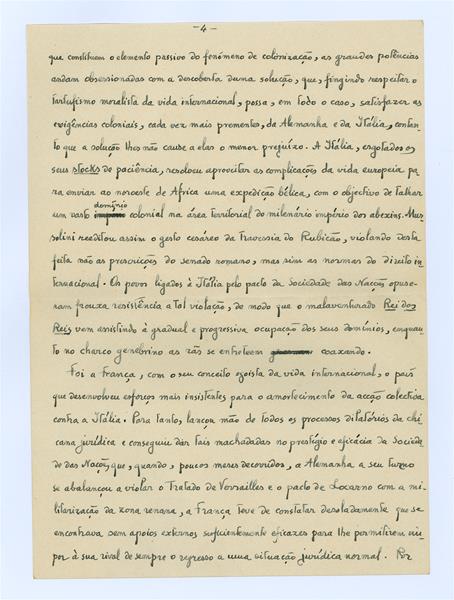 -4-
que constituem o elemento passivo do fenómeno de colonização, as grandes potências
andam obsessionadas com a descoberta duma solução, que, fingindo respeitar o
tartufismo moralista da vida internacional, possa, em todo o caso, satisfazer as
exigências coloniais, cada vez mais prementes, da Alemanha e da Itália, contan-
to que a solução lhes não cause a elas o menor prejuízo. A Itália, esgotados os
seus stocks de paciência, resolveu aproveitar as complicações da vida europeia pa-
ra enviar ao noroeste de Africa uma expedição bélica, com o objectivo de talhar
um vasto domínio colonial na área territorial do milenário império dos abexins. Mus-
solini reeditou assim o gesto cesáreo da Travessia do Rubicão, violando desta
feita não as prescrições do senado romano, mas sim as normas do direito in-
ternacional. Os povos ligados à Itália pelo pacto da Sociedade das Nações opuse-
ram frouxa resistência a tal violação, de modo que o malaventurado Rei dos
Reis vem assistindo à gradual e progressiva ocupação dos seus domínios, enquan-
to no charco genebrino as rãs se entreteem coaxando.
Foi a França, com o seu conceito egoista da vida internacional, o país
que desenvolveu esforços mais insistentes para o amortecimento da acção colectiva
contra a Itália. Para tanto, lançou mão de todos os processos dilatórios da chi-
cana jurídica e conseguiu dar tais machadadas no prestígio e eficácia da Socieda-
de das Nações, que, quando, poucos meses decorridos, a Alemanha a seu turno
se abalançou a violar o Tratado de Versailles e o pacto de Locarno com a mi-
litarização da zona renana, a França teve de constatar desoladamente que se
encontrava sem apoios externos suficientemente eficazes para lhe permitirem im-
por à sua rival de sempre o regresso a uma situação jurídica normal. Por